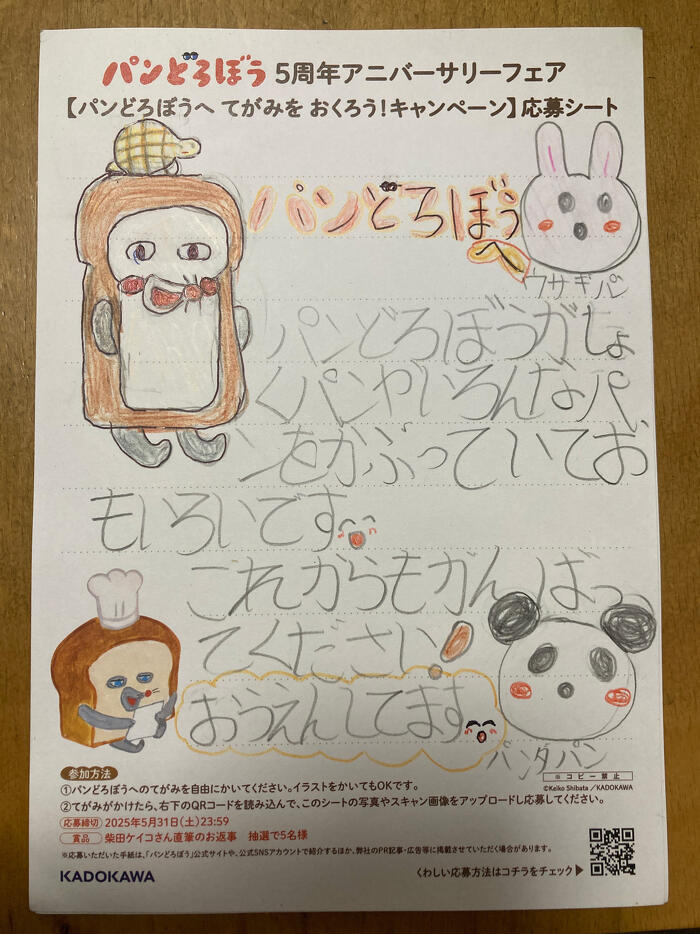 パンどろぼう 5周年アニバーサリーフェア
【パンどろぼうへ てがみを おくろう!キャンペーン】応募シート
パンどろぼう
へ
ウサギパン
パンどろぼうがしょ
くパンやいろんなパ
ンをかぶっていてお
もいろいです
これからもがんばっ
てください!
おうえんしてます
パンダパン
参加方法
※コピー禁止
©Keiko Shibata/KADOKAWA
①パンどろぼうへのてがみを自由にかいてください。イラストをかいてもOKです。
②てがみがかけたら、右下のQRコードを読み込んで、このシートの写真やスキャン画像をアップロードし応募してください。
応募締切 2025年5月31日(土)23:59
賞品 柴田ケイコさん直筆のお返事 抽選で5名様
※応募いただいた手紙は、「パンどろぼう」公式サイトや、公式SNSアカウントで紹介するほか、弊社のPR記事・広告等に掲載させていただく場合があります。
KADOKAWA
くわしい応募方法はコチラをチェック▶